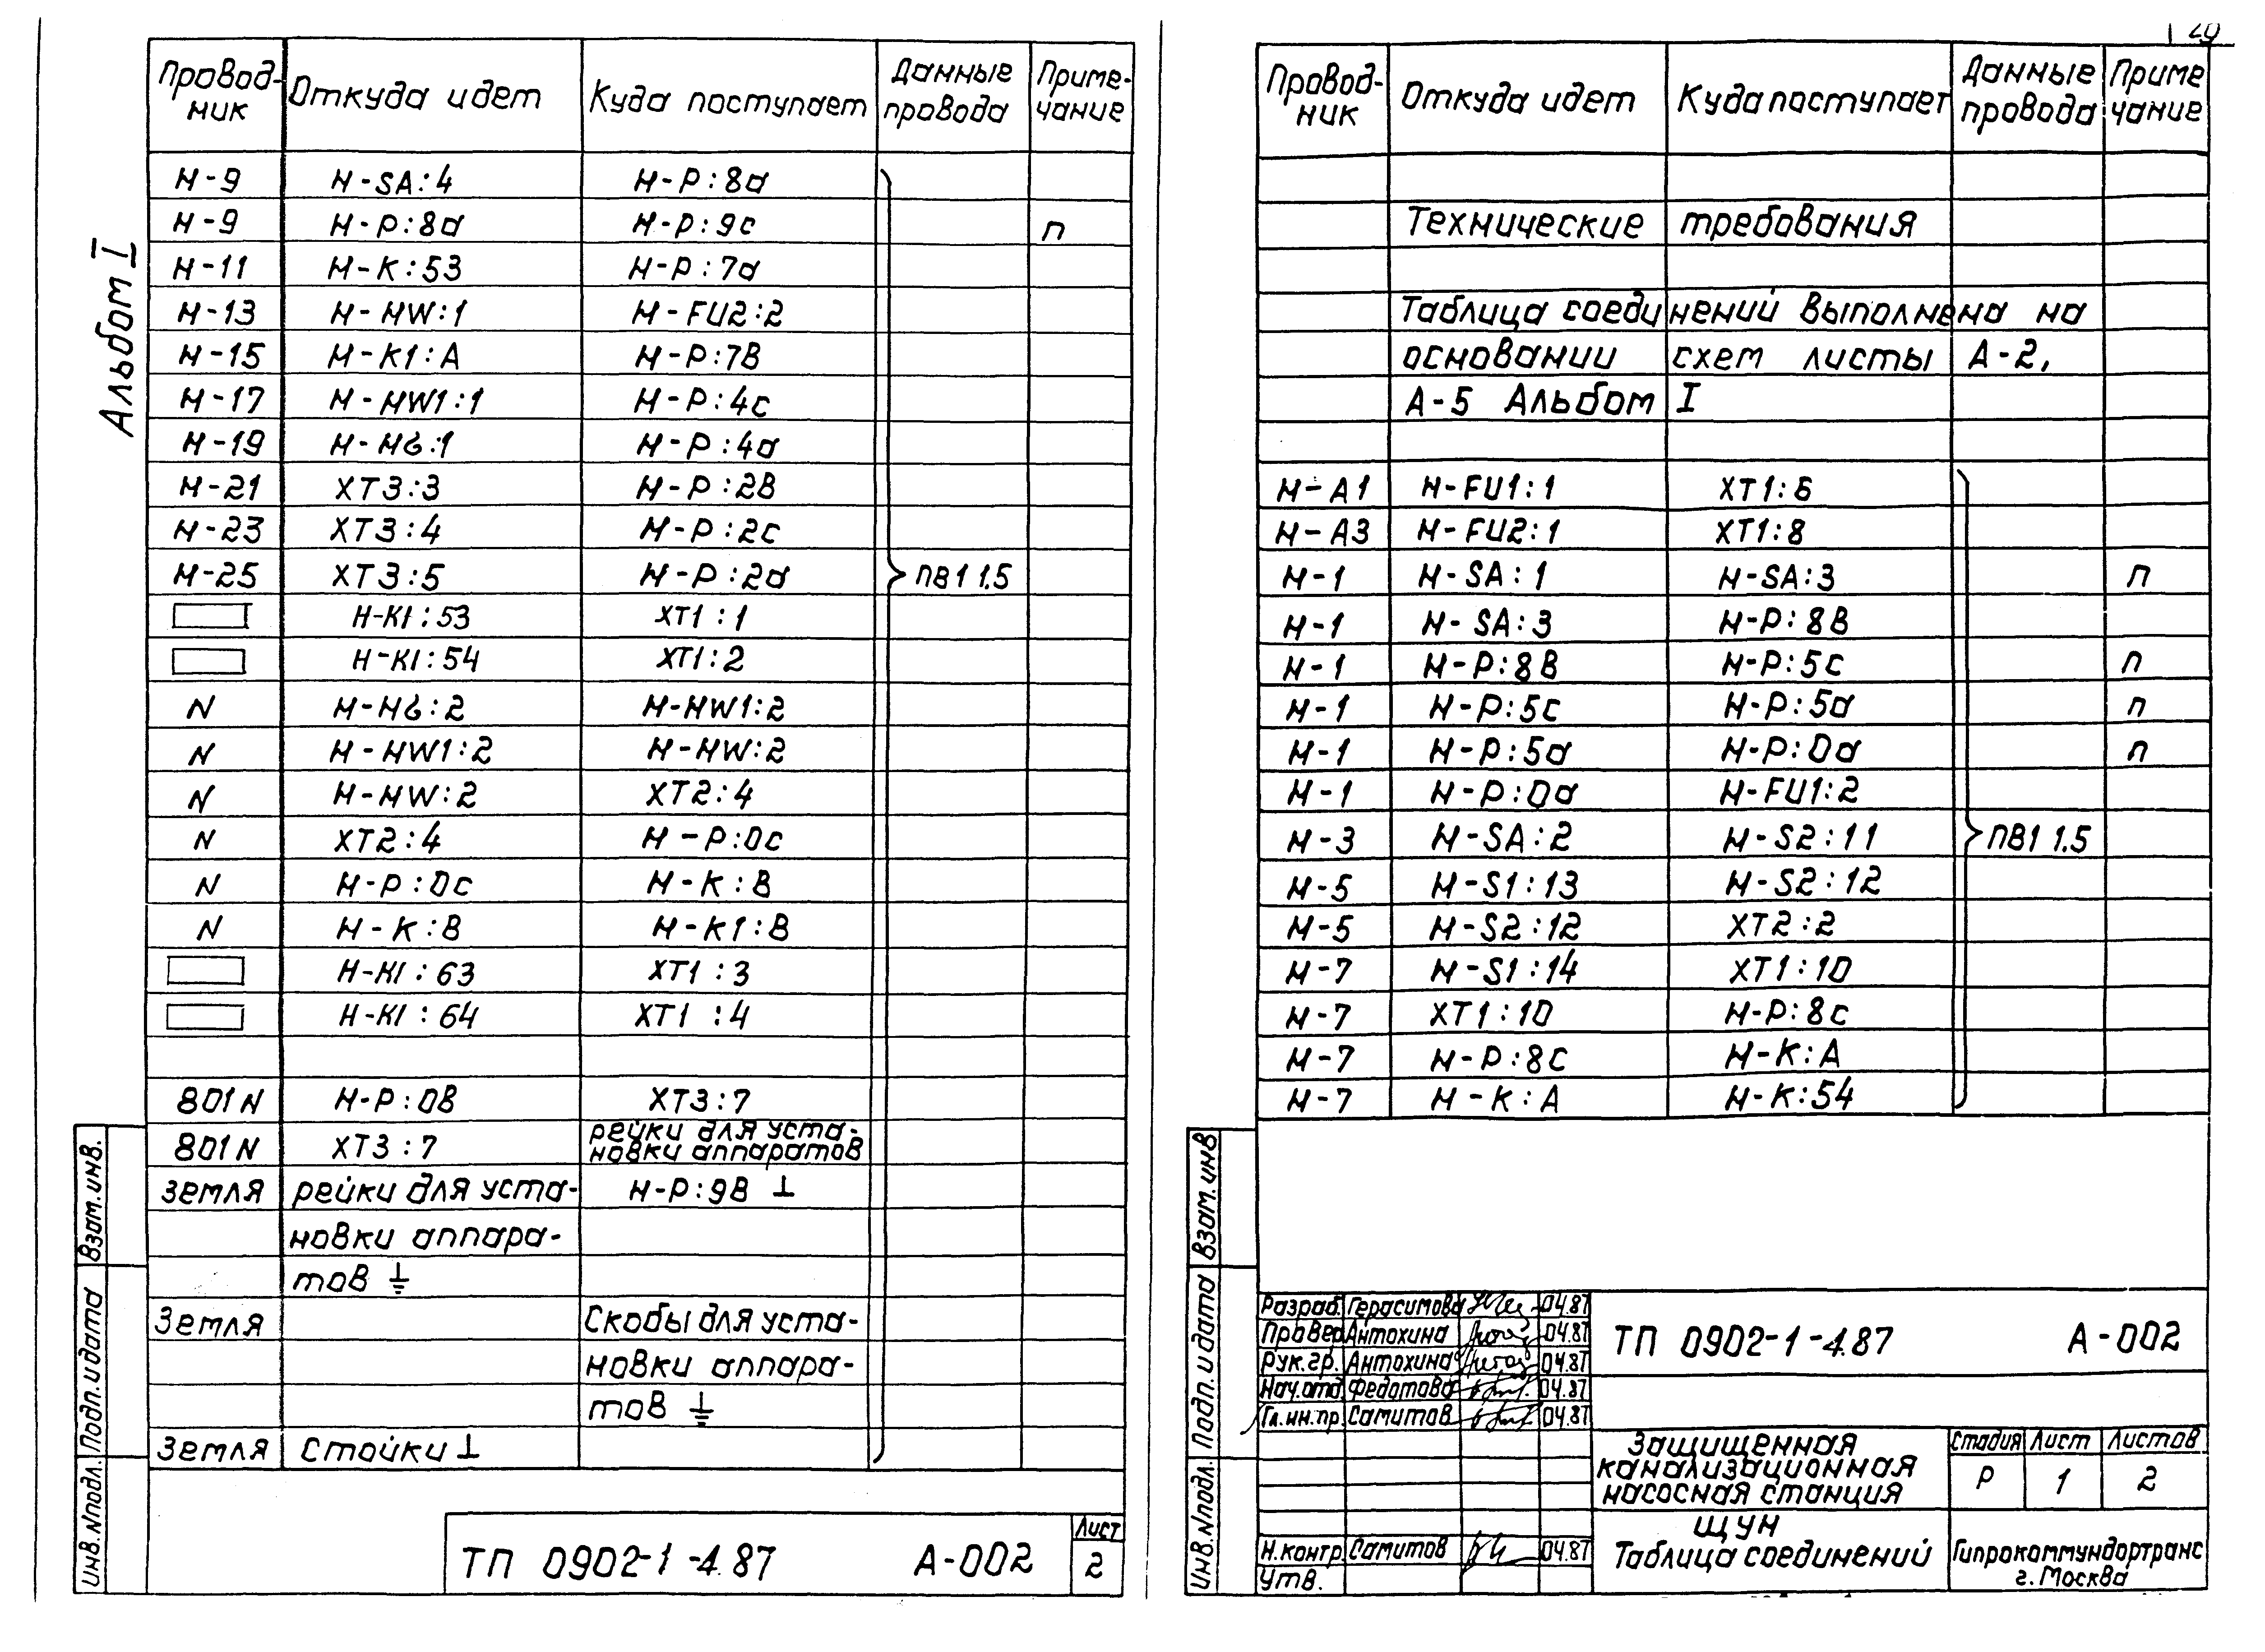 Альбом I
Провод-ник Откуда идет Куда поступает Данные провода Приме-чание
Н-9 Н-SA:4 Н-Р:8а
Н-9 Н-Р:8а Н-Р:9с п
Н-11 Н-К:53 Н-Р:7а
Н-13 Н-HW:1 Н-FU2:2
Н-15 Н-К1:А Н-Р:7В
Н-17 Н-HW1:1 Н-Р:4с
Н-19 Н-HG:1 Н-Р:4а
Н-21 ХТ3:3 Н-Р:2В
Н-23 ХТ3:4 Н-Р:2с
Н-25 ХТ3:5 Н-Р:2а ПВ1 1.5
Н-К1:53 ХТ1:1
Н-К1:54 ХТ1:2
N Н-HG:2 Н-HW1:2
N Н-HW1:2 Н-HW:2
N Н-HW:2 ХТ2:4
N ХТ2:4 Н-Р:0с
N Н-Р:0с Н-К:В
N Н-К:В Н-К1:В
Н-К1:63 ХТ1:3
Н-К1:64 ХТ1:4
801N Н-Р:0В ХТ3:7
801N ХТ3:7 рейки для уста-новки аппаратов
земля рейки для уста- Н-Р:9В ⊥
новки аппара-
тов ⏚
Земля Скобы для уста-
новки аппара-
тов ⏚
Земля Стойки ⊥
Взам. инв.
Подп. и дата
Инв. N подл.
ТП 0902-1-4.87 А-002 Лист 2
29
Провод-ник Откуда идет Куда поступает Данные провода Приме чание
Технические требования
Таблица соединений выполнена на
основании схем листы А-2,
А-5 Альбом I
Н-А1 Н-FU1:1 ХТ1:6
Н-А3 Н-FU2:1 ХТ1:8
Н-1 Н-SA:1 Н-SA:3 п
Н-1 Н-SA:3 Н-Р:8В
Н-1 Н-Р:8В Н-Р:5с п
Н-1 Н-Р:5с Н-Р:5а п
Н-1 Н-Р:5а Н-Р:0а п
Н-1 Н-Р:0а Н-FU1:2
Н-3 Н-SA:2 Н-S2:11 ПВ1 1.5
Н-5 Н-S1:13 Н-S2:12
Н-5 Н-S2:12 ХТ2:2
Н-7 Н-S1:14 ХТ1:10
Н-7 ХТ1:10 Н-Р:8с
Н-7 Н-Р:8с Н-К:А
Н-7 Н-К:А Н-К:54
Взам. инв
Подп. и дата
Инв. N подл.
Разраб. Герасимова 04.87
Провер Антохина 04.87
Рук. гр. Антохина 04.87
Нач. отд Федотова 04.87
Гл. ин. пр. Самитов 04.87
Н. контр Самитов 04.87
Утв.
ТП 0902-1-4.87 А-002
Защищенная
канализационная
насосная станция
Стадия Лист Листов
Р 1 2
ЩУН
Таблица соединений
Гипрокоммундортранс
г. Москва